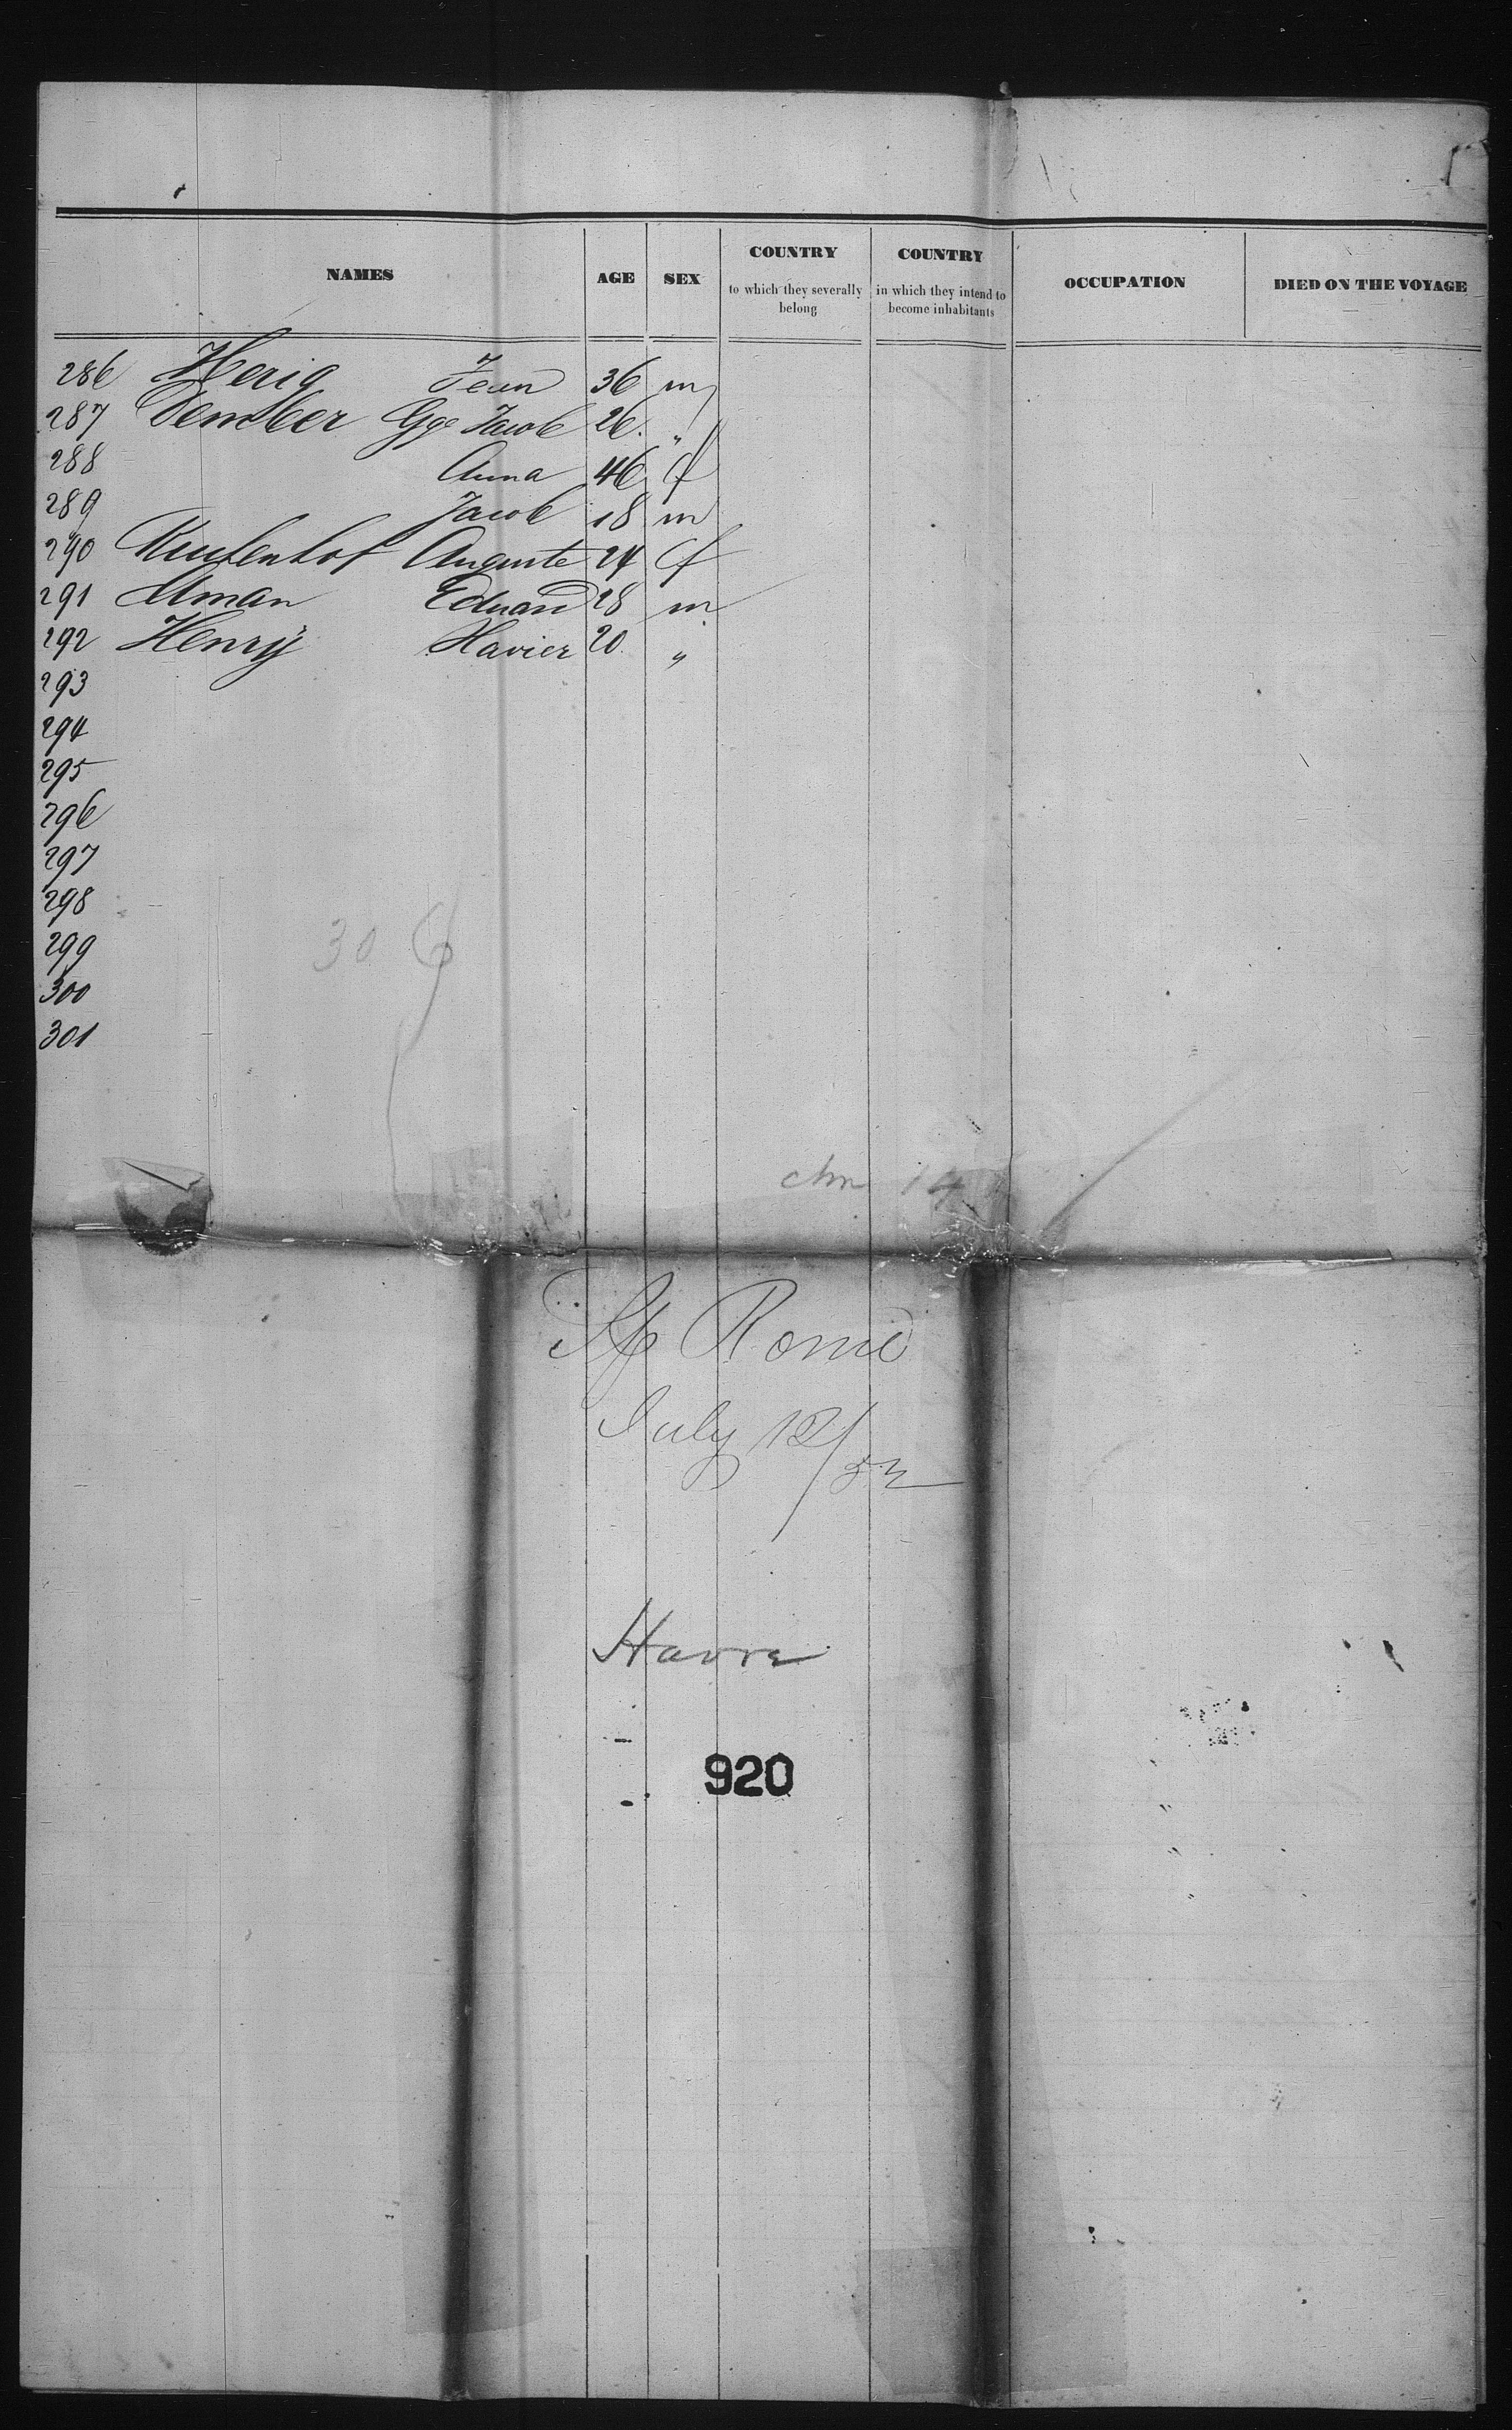 NAMES AGE SEX COUNTRY to which they severally belong COUNTRY in which they intend to become inhabitants OCCUPATION DIED ON THE VOYAGE
286 Herig Jean 36 m
287 Dember Gge Jacob 26 "
288 Anna 46 f
289 Jacob 18 m
290 Auguste 24 f
291 Eduard 28 m
292 Henry Xavier 20 "
293
294
295
296
297
298
299
300
301
306
14
Rome
July 12/53
Havre
920